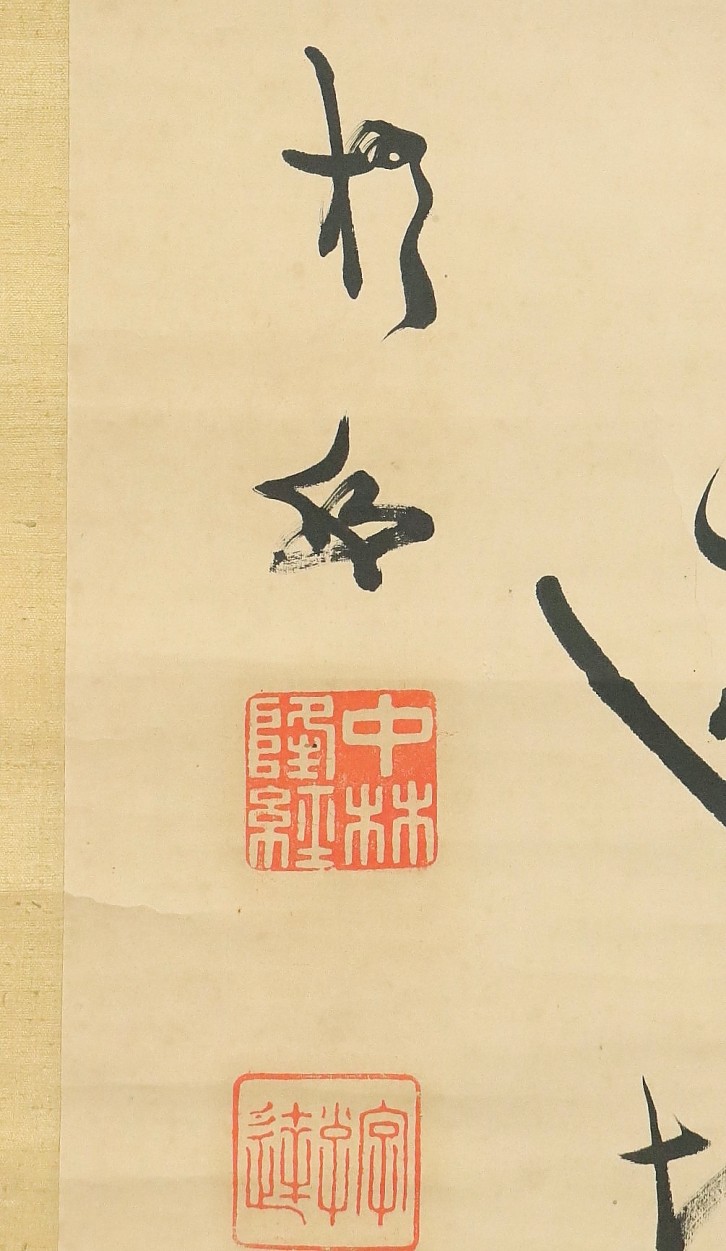 梧竹
中林
隆経
字子達